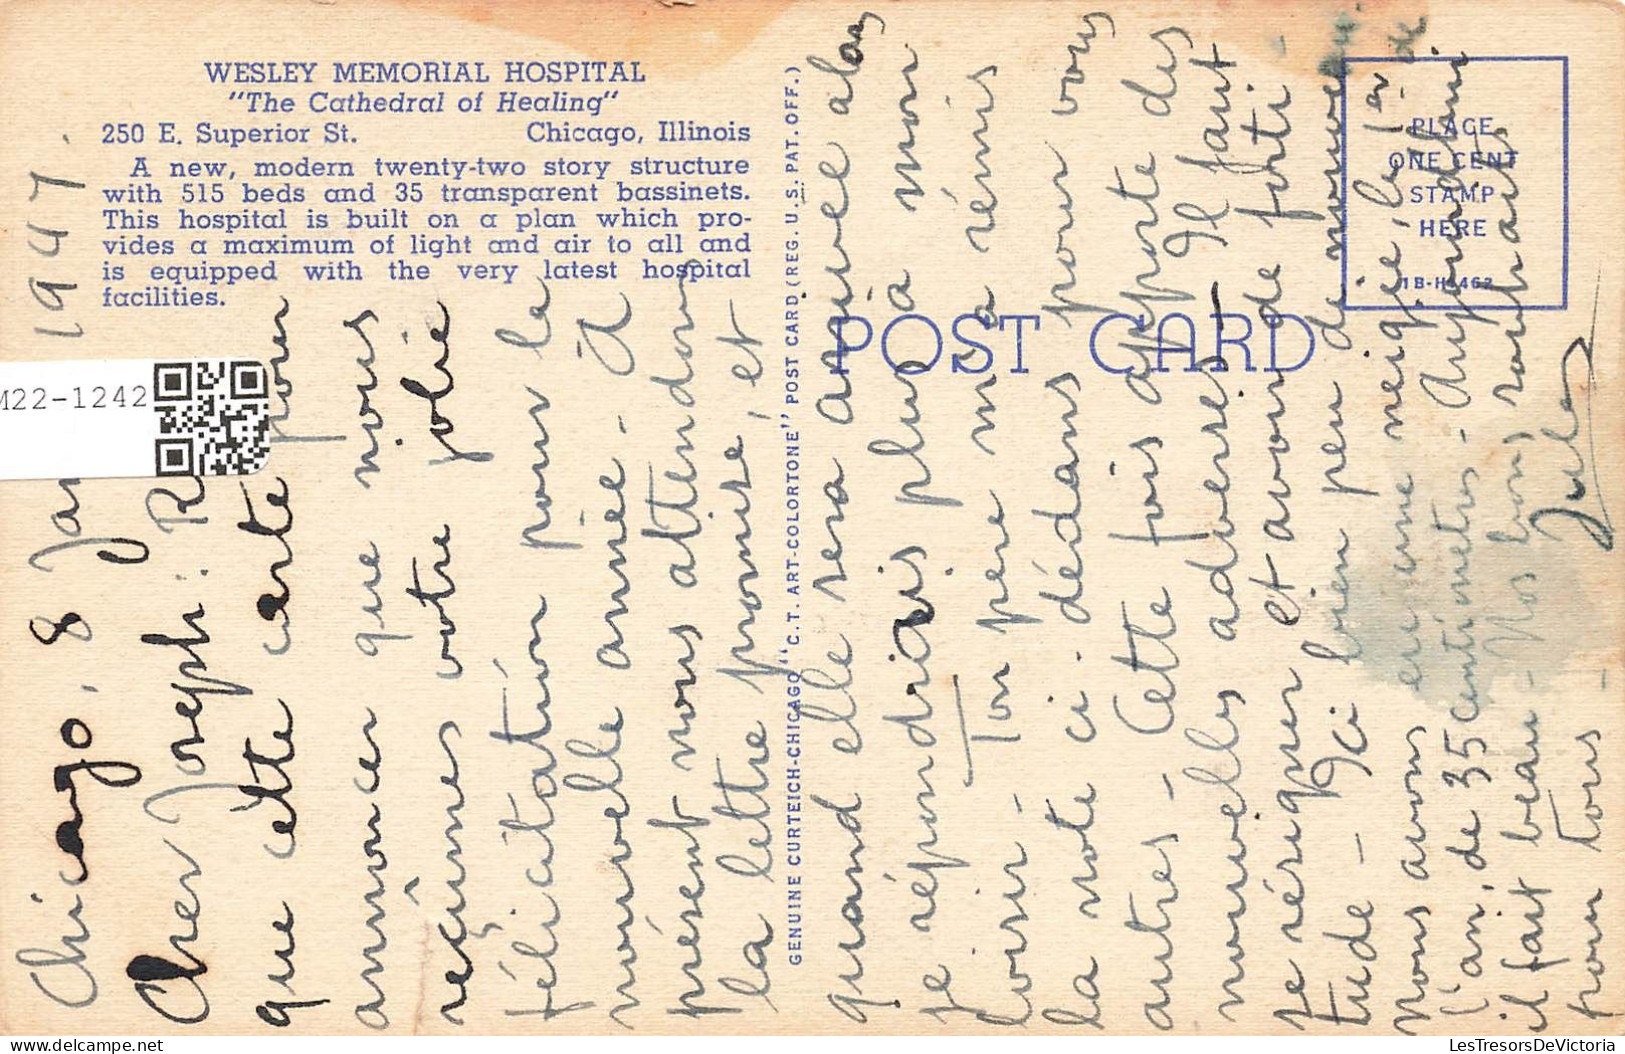 WESLEY MEMORIAL HOSPITAL
"The Cathedral of Healing"
250 E. Superior St. Chicago, Illinois
A new, modern twenty-two story structure
with 515 beds and 35 transparent bassinets.
This hospital is built on a plan which pro-
vides a maximum of light and air to all and
is equipped with the very latest hospital
facilities.
GENUINE CURTEICH-CHICAGO "C.T. ART-COLORTONE" POST CARD (REG. U.S. PAT. OFF.)
POST CARD
PLACE
ONE CENT
STAMP
HERE
1B-H1462
M22-1242
Chicago, 8 Jan 1947.
Cher Joseph: R
que cette carte pour
annoncer que nous
reçûmes votre jolie
félicitation pour la
nouvelle année - À
présent nous attendons
la lettre promise, et
quand elle sera arrivée alors
je répondrais plus à mon
loisir - Ton père m'a rémis
la note ci-dédans pour vous
autres - Cette fois apporte des
nouvelles adverses. Il faut
se résigner et avoir de forti-
tude - Ici bien peu de nouveau.
Nous avons eu une neige, le 1er de
l'an, de 35 centimetres - Aujourd'hui
il fait beau - Nos bons souhaits
pour tous -
Jules
LesTresorsDeVictoria
delcampe.net